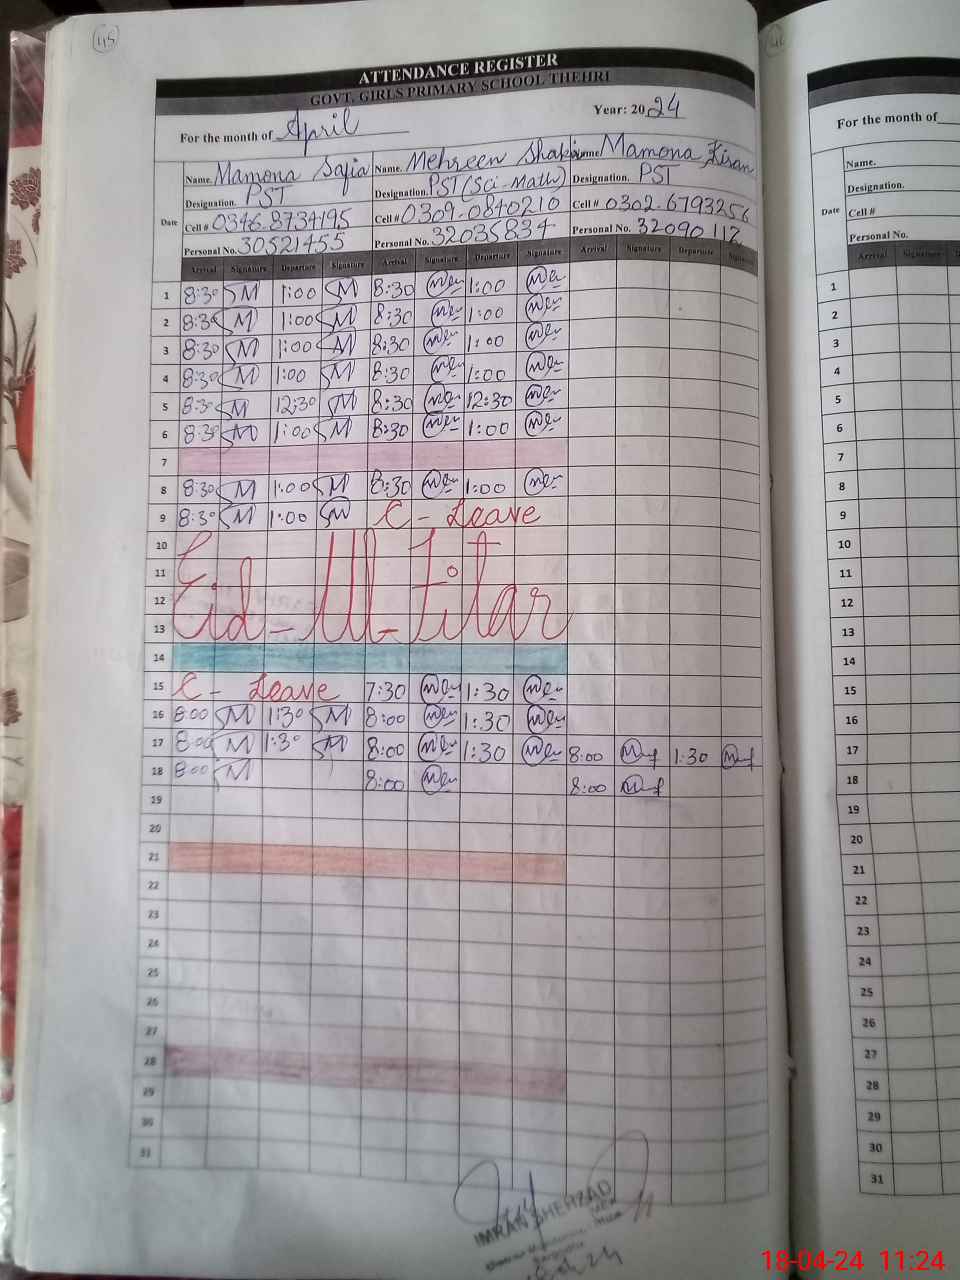 45
ATTENDANCE REGISTER
GOVT. GIRLS PRIMARY SCHOOL THEHRI
For the month of April Year: 2024
Name. Mamona Safia Name. Mehreen Shakir Name. Mamona Kiran
Designation. PST Designation. PST (Sci-Math) Designation. PST
Date Cell # 0346-8734195 Cell # 0309-0840210 Cell # 0302-6793256
Personal No. 30521455 Personal No. 32035834 Personal No. 32090112
Arrival Signature Departure Signature Arrival Signature Departure Signature Arrival Signature Departure Signature
1 8:30 SM 1:00 SM 8:30 1:00
2 8:30 SM 1:00 SM 8:30 1:00
3 8:30 SM 1:00 SM 8:30 1:00
4 8:30 SM 1:00 SM 8:30 1:00
5 8:30 SM 12:30 SM 8:30 12:30
6 8:30 SM 1:00 SM 8:30 1:00
7
8 8:30 SM 1:00 SM 8:30 1:00
9 8:30 SM 1:00 SM C - Leave
10
11
12 Eid-Ul-Fitar
13
14
15 C - Leave 7:30 1:30
16 8:00 SM 1:30 SM 8:00 1:30
17 8:00 SM 1:30 SM 8:00 1:30 8:00 1:30
18 8:00 SM 8:00 8:00
19
20
21
22
23
24
25
26
27
28
29
30
31
IMRAN SHEHZAD
For the month of
Name.
Designation.
Date Cell #
Personal No.
Arrival Signature
1
2
3
4
5
6
7
8
9
10
11
12
13
14
15
16
17
18
19
20
21
22
23
24
25
26
27
28
29
30
31
18-04-24 11:24